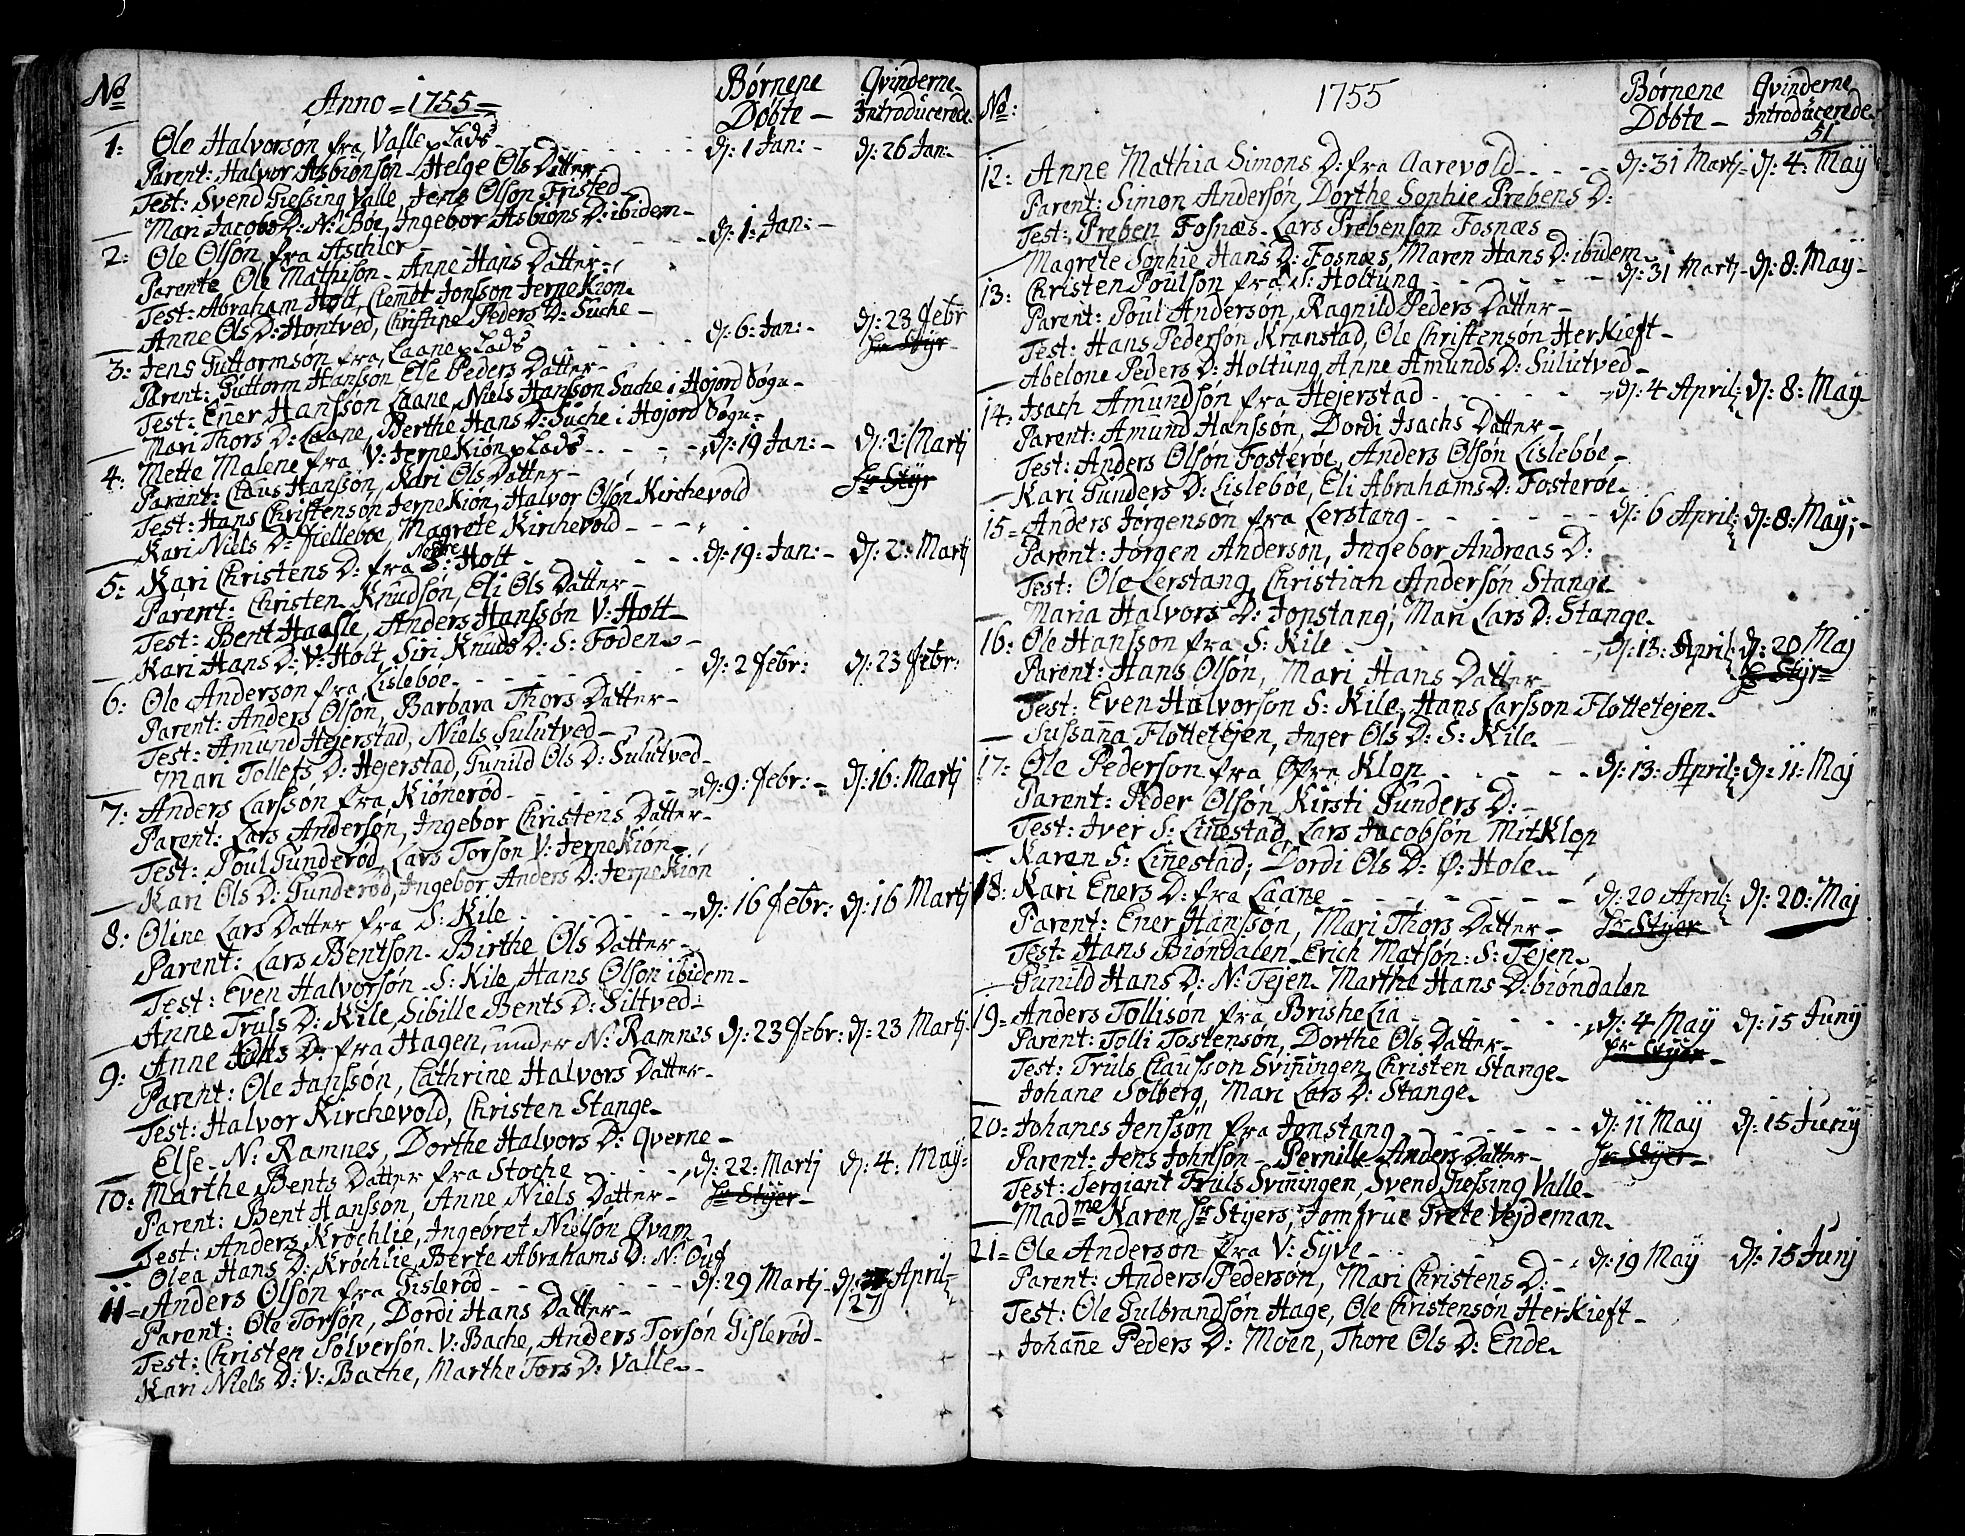 No
Anno = 1755 =
Børnene Døbte —
Qvinderne Introducerede.
1: Ole Halvorsøn fra Valle Plads - - - d: 1 Jan: - d: 26 Jan:
Parent: Halvor Asbiønsøn - Helge Ols Datter
Test: Svend Giessing Valle, Jens Olsøn Fristed -
Mari Jacobs D: N: Bøe, Ingebor Asbiøns D: ibidem -
2: Ole Olsøn fra Aschler - - - d: 1: Jan: -
Parente Ole Mathisøn - Anne Hans Datter -
Test: Abraham Holt, Clemet Jonsson Jernekiøn -
Anne Ols D: Hontved, Christine Peders D: Suche -
3: Jens Guttormsøn fra Laane Plads - - - d: 6: Jan: - d: 23 Febr
Hr Styr
Parent: Guttorm Hanssøn Ele Peders Datter -
Test: Ener Hanssøn Laane, Niels Hansson Suche i Højord Sogn -
Mari Thors D: Laane, Berthe Hans D: Suche i Højord Sogn -
4: Mette Malene fra V: Jernekiøn Plads - - - d: 19 Jan: - d: 2: Martj
Parent: Claus Hanssøn, Kari Ols Datter -
Hr Styr
Test: Hans Christensøn Jernekiøn, Halvor Olsøn Kirchevold
Kari Niels D: Fielleboe, Magrete Kirchevold - - -
5: Kari Christens D: fra Nordre S: Holt - - - d: 19: Jan: - d: 2: Martj
Parent: Christen Knudsøn, Eli Ols Datter -
Test: Bent Haasle, Anders Hanssøn V: Holt -
Kari Hans D: V: Holt Siri Knuds D: S: Foden -
6: Ole Andersøn fra Lisleboe - - - d: 2 Febr: d: 23 Febr:
Parent: Anders Olsøn, Barbara Thors Datter -
Test: Amund Hejerstad, Niels Sulutved -
Mari Tollefs D: Hejerstad, Gunild Ols D: Sulutved -
7: Anders Larssøn fra Kiønerød - - - d: 9: Febr: - d: 16: Martj
Parent: Lars Andersøn, Ingebor Christens Datter -
Test: Poul Gunderød, Lars Torsøn V: Jernekiøn -
Kari Ols D: Gunderød, Ingebor Anders D: Jernekiøn
8: Oline Lars Datter fra S: Kile - - - d: 16 Febr: d: 16 Martj
Parent: Lars Bentsøn - Birthe Ols Datter -
Test: Even Halvorsøn - S: Kile, Hans Olsøn ibidem -
Anne Truls D: Kile, Sibille Bents D: Siltved:
9: Anne D: fra Hagen, under N: Ramnes d: 23 Febr: d: 23 Martj.
Parent: Ole Janssøn, Cathrine Halvors Datter -
Test: Halvor Kirchevold, Christen Stange -
Else - N: Ramnes, Dorthe Halvors D: Qverne -
10: Marthe Bents Datter fra Stoche - - - d: 22: Martj d: 4: Maÿ:
Hr Stÿer -
Parent: Bent Hansson, Anne Niels Datter -
Test: Anders Krøchlie, Ingebret Nielsøn Qvam
Olea Hans D: Krøchlie, Berte Abrahams D: N: Ouf
11 = Anders Olsøn fra Gislerød - - - d: 29 Martj - d: April -
27
Parent: Ole Torsøn, Dordi Hans Datter -
Test: Christen Sølversøn - V: Bache, Anders Torsøn Gislerød -
Kari Niels D: V: Bache, Marthe Tors D: Valle -
No:
1755
Børnene Døbte -
Qvinderne Introducerede.
51
12: Anne Mathia Simons D: fra Aarevold - - - d: 31 Martj - d: 4: Maÿ
Parent: Simon Andersøn, Dorthe Sophie Prebens D:
Test: Preben Fosnæs - Lars Prebensøn Fosnæs
Magrete Sophie Hans D: Fosnæs, Maren Hans D: ibidem -
13: Christen Poulsøn fra S: Holtung - - - d: 31 Martj - d: 8: Maÿ -
Parent: Poul Andersøn, Ragnild Peders Datter -
Test: Hans Pedersøn Kranstad, Ole Christensøn Herkieft -
Abelone Peders D: Holtung, Anne Amunds D: Sulutved -
14: Isach Amundsøn fra Hejerstad - - - d: 4 April: d: 8: May
Parent: Amund Hanssøn, Dordi Isachs Datter -
Test: Anders Olsøn Fosterøe, Anders Olsøn Lislebøe -
Kari Gunders D: Lislebøe, Eli Abrahams D: Fosterøe -
15 = Anders Jørgensøn fra Lerstang - - - d: 6 April: d: 8: Maÿ; -
Parent: Jørgen Andersøn, Ingebor Andreas D:
Test: Ole Lerstang, Christian Andersøn Stange -
Maria Halvors D: Jonstang; Mari Lars D: Stange -
16: Ole Hansson fra S: Kile - - - d: 13: April: d: 20 Maj
Hr Stÿr =
Parent: Hans Olsøn, Mari Hans Datter
Test: Even Halvorsøn S: Kile, Hans Larsson Fløttetejen -
Sussaña Fløttetejen, Inger Ols D: S: Kile -
17: Ole Pedersøn fra Øfre Klop - - - d: 13: April: d: 11: Maj
Parent: Peder Olsøn Kirsti Gunders D: -
Test: Iver S: Linestad, Lars Jacobsøn MitKlop
Karen S: Linestad; Dordi Ols D: Ø: Hole -
18: Kari Eners D: fra Laane - - - d: 20 April: d: 20: Maj
Hr Stÿer
Parent: Ener Hanssøn, Mari Thors Datter -
Test: Hans Biøndalen - Erich Matsøn: S: Tejen -
Gunild Hans D: N: Tejen - Marthe Hans D: biøndalen
19 = Anders Tollisøn fra Brishelia - - - d: 4 Maÿ d: 15 Junÿ
Hr Stÿer -
Parent: Tolli Tostensøn, Dorthe Ols Datter -
Test: Truls Clausson Sviñingen, Christen Stange -
Johane Solberg, Mari Lars D: Stange -
20 = Johanes Jenssøn fra Jonstang - - - d: 11 Maÿ d: 15 Junÿ
Hr Stÿer -
Parent: Jens Johnsøn - Pernille Anders Datter -
Test: Sergiant Truls Sviñingen, Svend Giessing Valle -
Madme Karen Hr Stÿers, Jomfrue Grete Vejdeman -
21 = Ole Andersøn fra V: Syve - - - d: 19 Maÿ d: 15 Junj
Parent: Anders Pedersøn, Mari Christens D: -
Test: Ole Gulbrandsøn Hage, Ole Christensøn Herkieft -
Johañe Peders D: Moen, Thore Ols D: Ende -